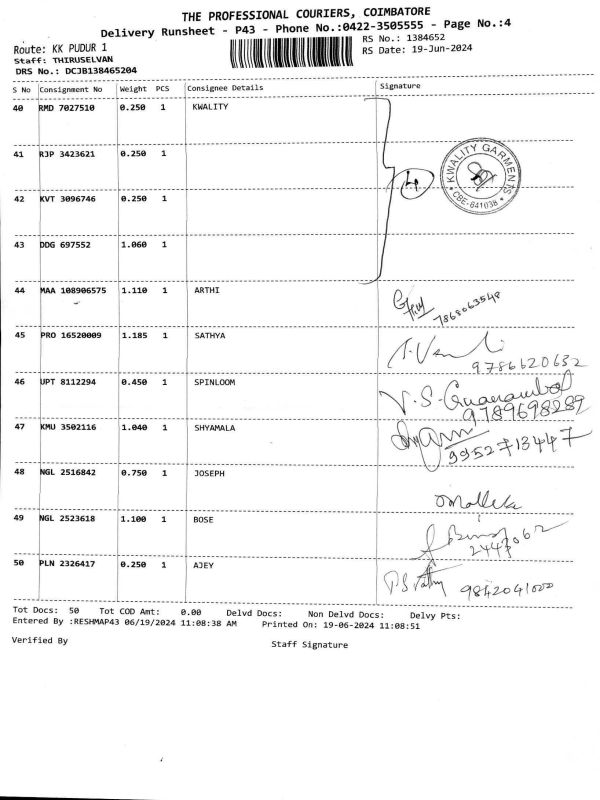 THE PROFESSIONAL COURIERS, COIMBATORE
Delivery Runsheet - P43 - Phone No.:0422-3505555 - Page No.:4
Route: KK PUDUR 1
RS No.: 1384652
Staff: THIRUSELVAN
RS Date: 19-Jun-2024
DRS No.: DCJB138465204
S No Consignment No Weight PCS Consignee Details Signature
40 RMD 7027510 0.250 1 KWALITY
41 RJP 3423621 0.250 1
KWALITY GARMENTS
CBE-641038
4
42 KVT 3096746 0.250 1
43 DDG 697552 1.060 1
44 MAA 108906575 1.110 1 ARTHI
7868063548
45 PRO 16520009 1.185 1 SATHYA
9786620632
46 UPT 8112294 0.450 1 SPINLOOM
9789698289
47 KMU 3502116 1.040 1 SHYAMALA
9952713447
48 NGL 2516842 0.750 1 JOSEPH
49 NGL 2523618 1.100 1 BOSE
50 PLN 2326417 0.250 1 AJEY
9842041000
Tot Docs: 50 Tot COD Amt: 0.00 Delvd Docs: Non Delvd Docs: Delvy Pts:
Entered By :RESHMAP43 06/19/2024 11:08:38 AM Printed On: 19-06-2024 11:08:51
Verified By
Staff Signature